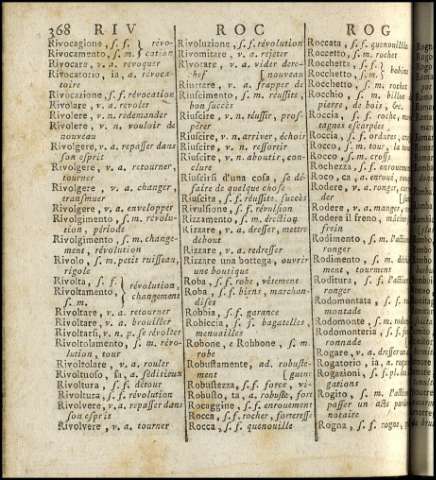 368 RIV ROC ROG
Rivocagione, s. f. } révo-
Rivocamento, s. m. } cation
Rivocare, v. a. révoquer
Rivocatorio, ia, a. révoca-
toire
Rivocazione, s. f. révocation
Rivolare, v. a. revoler
Rivolere, v. n. redemander
Rivolere, v. n. vouloir de
nouveau
Rivolgere, v. a. repasser dans
son esprit
Rivolgere, v. a. retourner,
tourner
Rivolgere, v. a. changer,
transmuer
Rivolgere, v. a. envelopper
Rivolgimento, s. m. révolu-
tion, période
Rivolgimento, s. m. change-
ment, révolution
Rivolo, s. m. petit ruisseau,
rigole
Rivolta, s. f. { révolution,
Rivoltamento, { changement
s. m.
Rivoltare, v. a. retourner
Rivoltare, v. a. brouiller
Rivoltarsi, v. n. p. se révolter
Rivoltolamento, s. m. révo-
lution, tour
Rivoltolare, v. a. rouler
Rivoltuoso, sa, a. séditieux
Rivoltura, s. f. détour
Rivoltura, s. f. révolution
Rivolvere, v. a. repasser dans
son esprit
Rivolvere, v. a. tourner
Rivoluzione, s. f. révolution
Rivomitare, v. a. rejeter
Rivotare, v. a. vider dere-
chef [ nouveau
Riurtare, v. a. frapper de
Riuscimento, s. m. réussite,
bon succès
Riuscire, v. n. réussir, pros-
pérer
Riuscire, v. n. arriver, échoir
Riuscire, v. n. ressortir
Riuscire, v. n. aboutir, con-
clure
Riuscirsi d'una cosa, se dé-
faire de quelque chose
Riuscita, s. f. réussite, succès
Rivulsione, s. f. révulsion
Rizzamento, s. m. érection
Rizzare, v. a. dresser, mettre
debout
Rizzare, v. a. redresser
Rizzare una bottega, ouvrir
une boutique
Roba, s. f. robe, vêtement
Roba, s. f. biens, marchan-
dises
Robbia, s. f. garance
Robiccia, s. f. bagatelles,
menuailles
Robone, e Robbone, s. m.
robe
Robustamente, ad. robuste-
ment [ gueur
Robustezza, s. f. force, vi-
Robusto, ta, a. robuste, fort
Rocaggine, s. f. enrouement
Rocca, s. f. rocher, forteresse
Rocca, s. f. quenouille
Roccata, s. f. quenouillée
Roccetto, s. m. rochet
Rocchetta, s. f. }
Rocchetto, s. m. } bobine
Rocchetto, s. m. rochet
Rocchio, s. m. billot de
pierre, de bois, &c.
Roccia, s. f. roche, mon-
tagnes escarpées
Roccia, s. f. ordure, crasse
Rocco, s. m. tour, la tour
Rocco, s. m. crosse
Rochezza, s. f. enrouement
Roco, ca, a. enroué, rauque
Rodere, v. a. ronger, corro-
der
Rodere, v. a. manger,
Rodere il freno, mâcher
frein
Rodimento, s. m. l'action
ronger
Rodimento, s. m.
ment, tourment
Roditura, s. f. l'action
ronger
Rodomontata, s. f. rodo-
montade
Rodomonte, s. m. rodomont
Rodomonteria, s. f. fanfa-
ronnade
Rogare, v. a. dresser
Rogatorio, ia, a. rogatoire
Rogazioni, s. f. pl. les ro-
gations
Rogito, s. m. l'action
passer un acte par
notaire
Rogna, s. f. rogne,